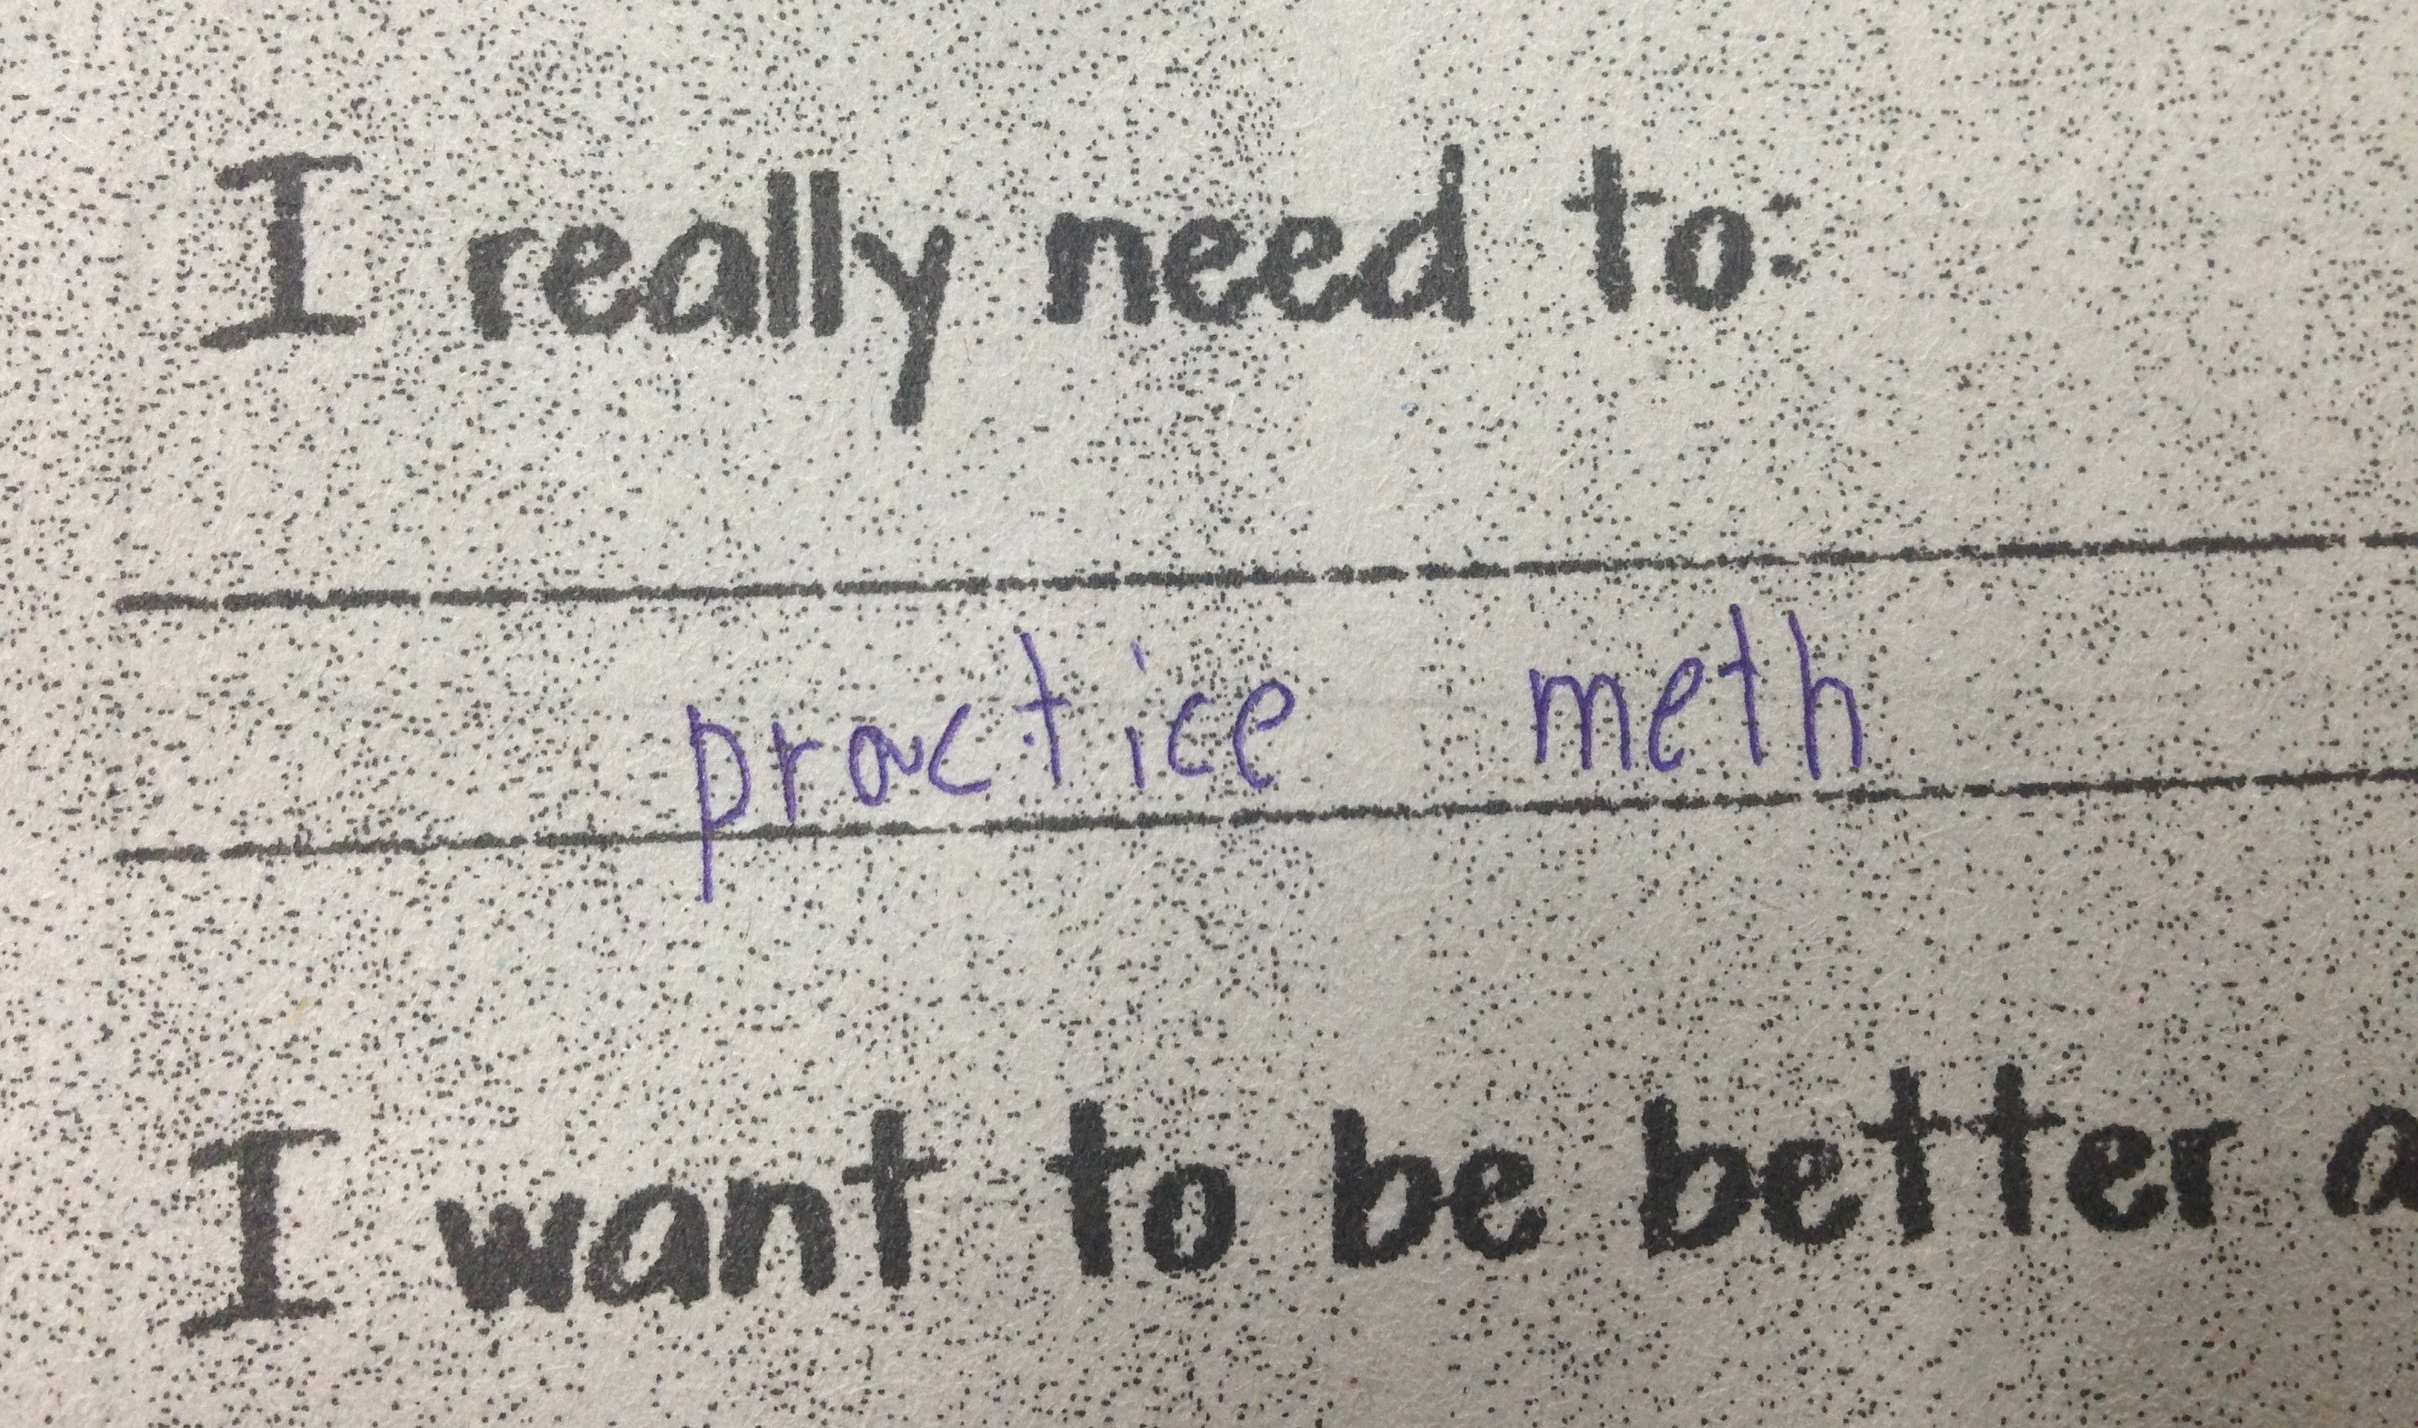 I really need to:
practice meth
I want to be better a